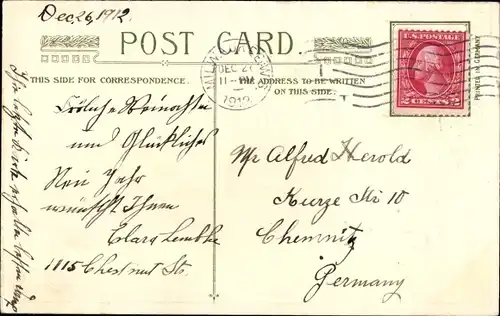 Dec 26, 1912.
POST CARD.
THIS SIDE FOR CORRESPONDENCE.
THE ADDRESS TO BE WRITTEN
ON THIS SIDE.
MILWAUKEE, WIS.
DEC 27
1912
U.S. POSTAGE
2 CENTS 2
PRINTED IN GERMANY
Fröliche Weinachten
und Glückliches
Neu Jahr
wünscht Ihnen
Clara Lembke
1115 Chestnut Str.
Mr Alfred Herold
Kurze Str 10
Chemnitz
Germany
Ihre letzte Karte erhalten besten